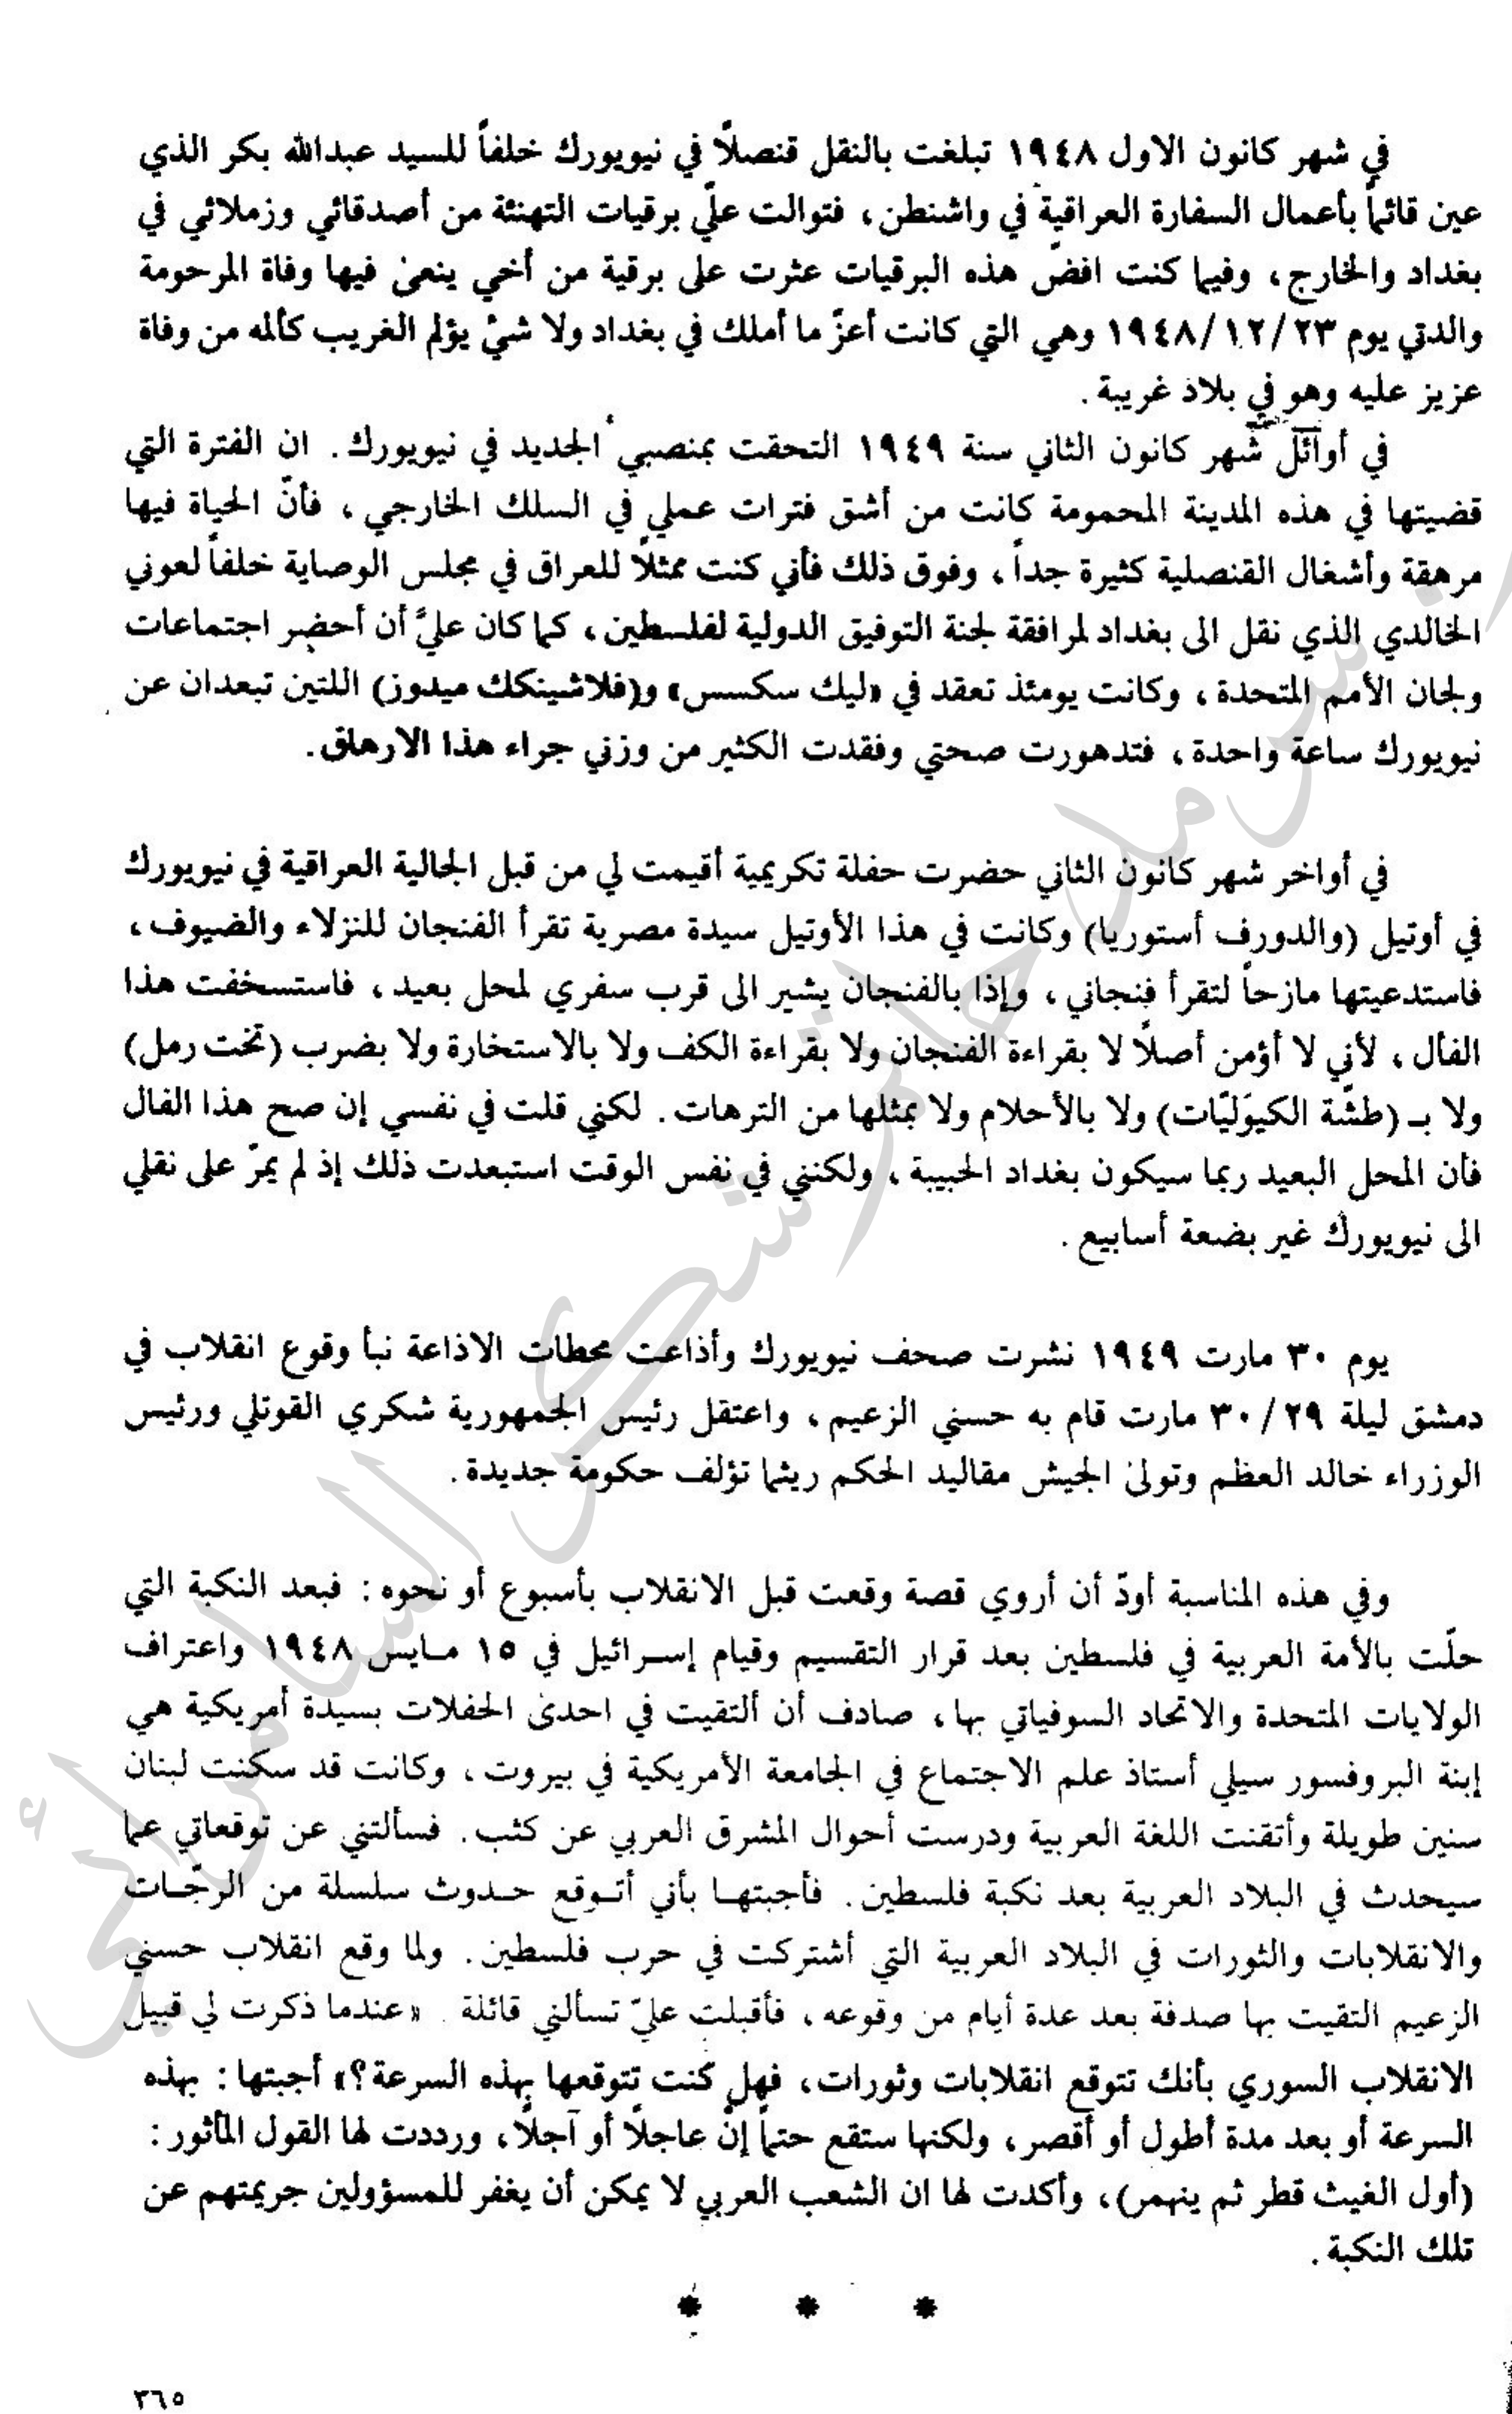 في شهر كانون الاول ١٩٤٨ تبلغت بالنقل قنصلاً في نيويورك خلفاً للسيد عبدالله بكر الذي
عين قائماً بأعمال السفارة العراقية في واشنطن ، فتوالت عليّ برقيات التهنئة من أصدقائي وزملائي في
بغداد والخارج ، وفيما كنت افضّ هذه البرقيات عثرت على برقية من أخي ينعىٰ فيها وفاة المرحومة
والدتي يوم ٢٣/ ١٢/ ١٩٤٨ وهي التي كانت أعزّ ما أملك في بغداد ولا شيْ يؤلم الغريب كألمه من وفاة
عزيز عليه وهو في بلاد غريبة .
في أوائل شهر كانون الثاني سنة ١٩٤٩ التحقت بمنصبي الجديد في نيويورك . ان الفترة التي
قضيتها في هذه المدينة المحمومة كانت من أشق فترات عملي في السلك الخارجي ، فأنّ الحياة فيها
مرهقة وأشغال القنصلية كثيرة جداً ، وفوق ذلك فأني كنت ممثلاً للعراق في مجلس الوصاية خلفاً لعوني
الخالدي الذي نقل الى بغداد لمرافقة لجنة التوفيق الدولية لفلسطين ، كما كان عليَّ أن أحضر اجتماعات
ولجان الأمم المتحدة ، وكانت يومئذ تعقد في «ليك سكسس» و(فلاشينكك ميدوز) اللتين تبعدان عن
نيويورك ساعة واحدة ، فتدهورت صحتي وفقدت الكثير من وزني جراء هذا الارهاق .
في أواخر شهر كانون الثاني حضرت حفلة تكريمية أقيمت لي من قبل الجالية العراقية في نيويورك
في أوتيل (والدورف أستوريا) وكانت في هذا الأوتيل سيدة مصرية تقرأ الفنجان للنزلاء والضيوف ،
فاستدعيتها مازحاً لتقرأ فنجاني ، وإذا بالفنجان يشير الى قرب سفري لمحل بعيد ، فاستسخفت هذا
الفأل ، لأني لا أؤمن أصلاً لا بقراءة الفنجان ولا بقراءة الكف ولا بالاستخارة ولا بضرب (تخت رمل)
ولا بـ (طشّة الكيوَليّات) ولا بالأحلام ولا بمثلها من الترهات . لكني قلت في نفسي إن صح هذا الفال
فأن المحل البعيد ربما سيكون بغداد الحبيبة ، ولكنني في نفس الوقت استبعدت ذلك إذ لم يمرّ على نقلي
الى نيويورك غير بضعة أسابيع .
يوم ٣٠ مارت ١٩٤٩ نشرت صحف نيويورك وأذاعت محطات الاذاعة نبأ وقوع انقلاب في
دمشق ليلة ٢٩/ ٣٠ مارت قام به حسني الزعيم ، واعتقل رئيس الجمهورية شكري القوتلي ورئيس
الوزراء خالد العظم وتولىٰ الجيش مقاليد الحكم ريثما تؤلف حكومة جديدة .
وفي هذه المناسبة أودّ أن أروي قصة وقعت قبل الانقلاب بأسبوع أو نحوه : فبعد النكبة التي
حلّت بالأمة العربية في فلسطين بعد قرار التقسيم وقيام إسرائيل في ١٥ مايس ١٩٤٨ واعتراف
الولايات المتحدة والاتحاد السوفياتي بها ، صادف أن ألتقيت في احدىٰ الحفلات بسيدة أمريكية هي
إبنة البروفسور سيلي أستاذ علم الاجتماع في الجامعة الأمريكية في بيروت ، وكانت قد سكنت لبنان
سنين طويلة وأتقنت اللغة العربية ودرست أحوال المشرق العربي عن كثب . فسألتني عن توقعاتي عما
سيحدث في البلاد العربية بعد نكبة فلسطين . فأجبتها بأني أتوقع حدوث سلسلة من الرجّات
والانقلابات والثورات في البلاد العربية التي أشتركت في حرب فلسطين . ولما وقع انقلاب حسني
الزعيم التقيت بها صدفة بعد عدة أيام من وقوعه ، فأقبلت عليّ تسألني قائلة . «عندما ذكرت لي قبيل
الانقلاب السوري بأنك تتوقع انقلابات وثورات ، فهل كنت تتوقعها بهذه السرعة؟» أجبتها : بهذه
السرعة أو بعد مدة أطول أو أقصر ، ولكنها ستقع حتماً إنْ عاجلاً أو آجلاً ، ورددت لها القول المأثور :
(أول الغيث قطر ثم ينهمر) ، وأكدت لها ان الشعب العربي لا يمكن أن يغفر للمسؤولين جريمتهم عن
تلك النكبة .
* * *
٣٦٥